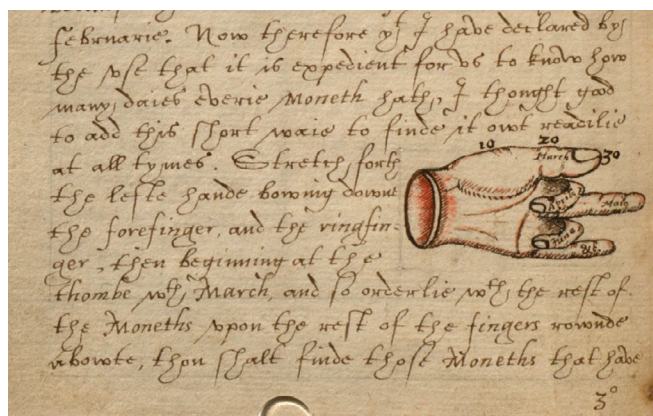 februarie. Now therefore yt I have declared by
the vse that it is expedient for vs to know how
many daies everie Moneth hath, I thought good
to add this short waie to finde it owt readilie
at all tymes. Stretch forth
the lefte hande bowing downe
the forefinger, and the ringfin-
ger, then beginning at the
thombe wth March, and so orderlie wth the rest of
the Moneths vpon the rest of the fingers rownde
abowte, thou shalt finde those Moneths that have
30
10 20 30
March
Aprill
May
June